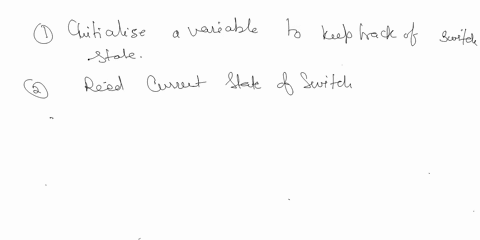 ① Initialise a variable to keep track of switch
state.
② Read Current State of Switch